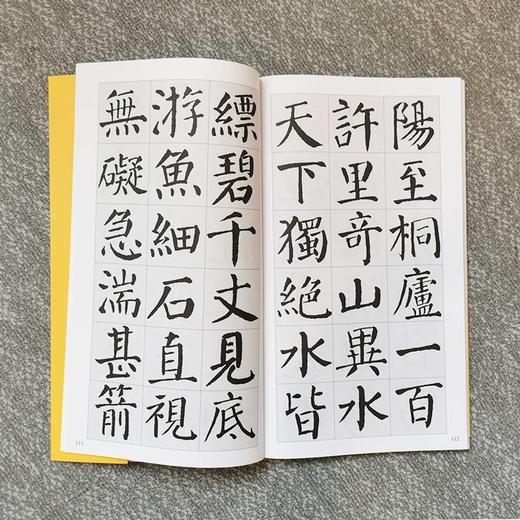 陽至桐廬一百
許里奇山異水
天下獨絕水皆
縹碧千丈見底
游魚細石直視
無礙急湍甚箭
112
111